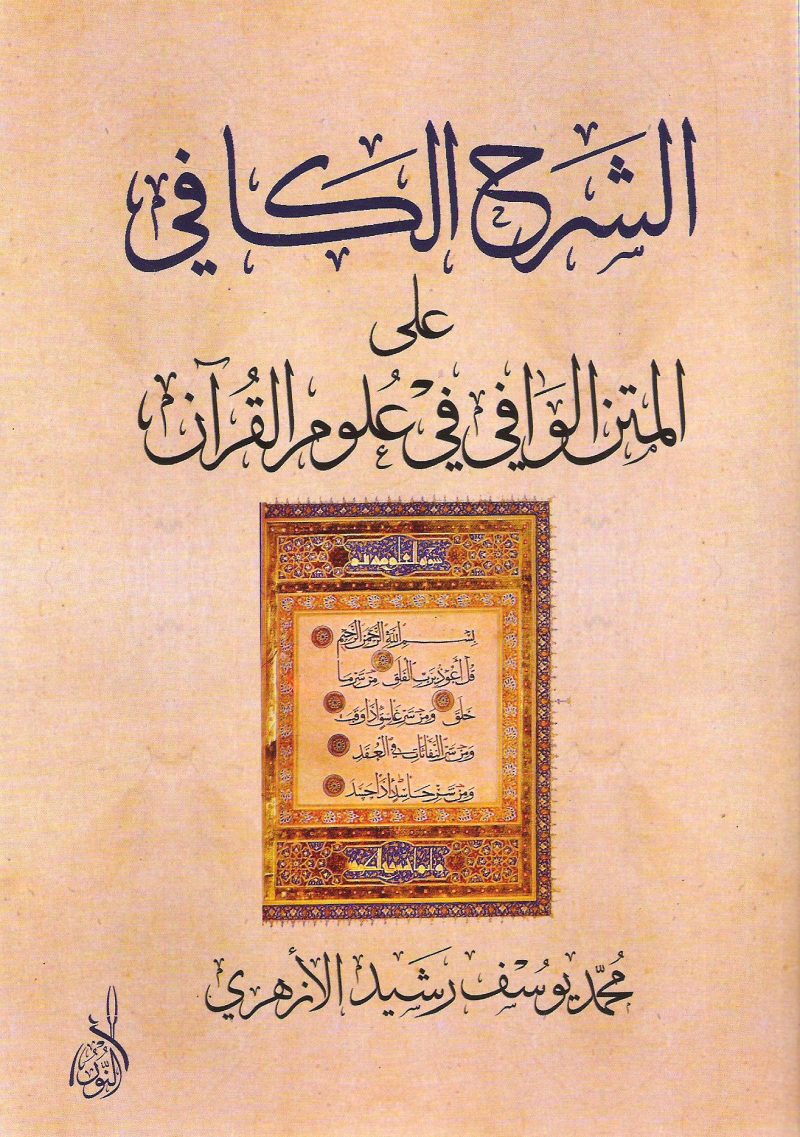 الشرح الكافي
على
المتن الوَافي فيْ عُلوم القُرآن
بسم الله الرحمن الرحيم
قل أعوذ برب الفلق من شر ما
خلق ومن شر غاسق إذا وقب
ومن شر النفاثات في العقد
ومن شر حاسد إذا حسد
محمّد يوُسُف رَشيد الأزهري
النُّور